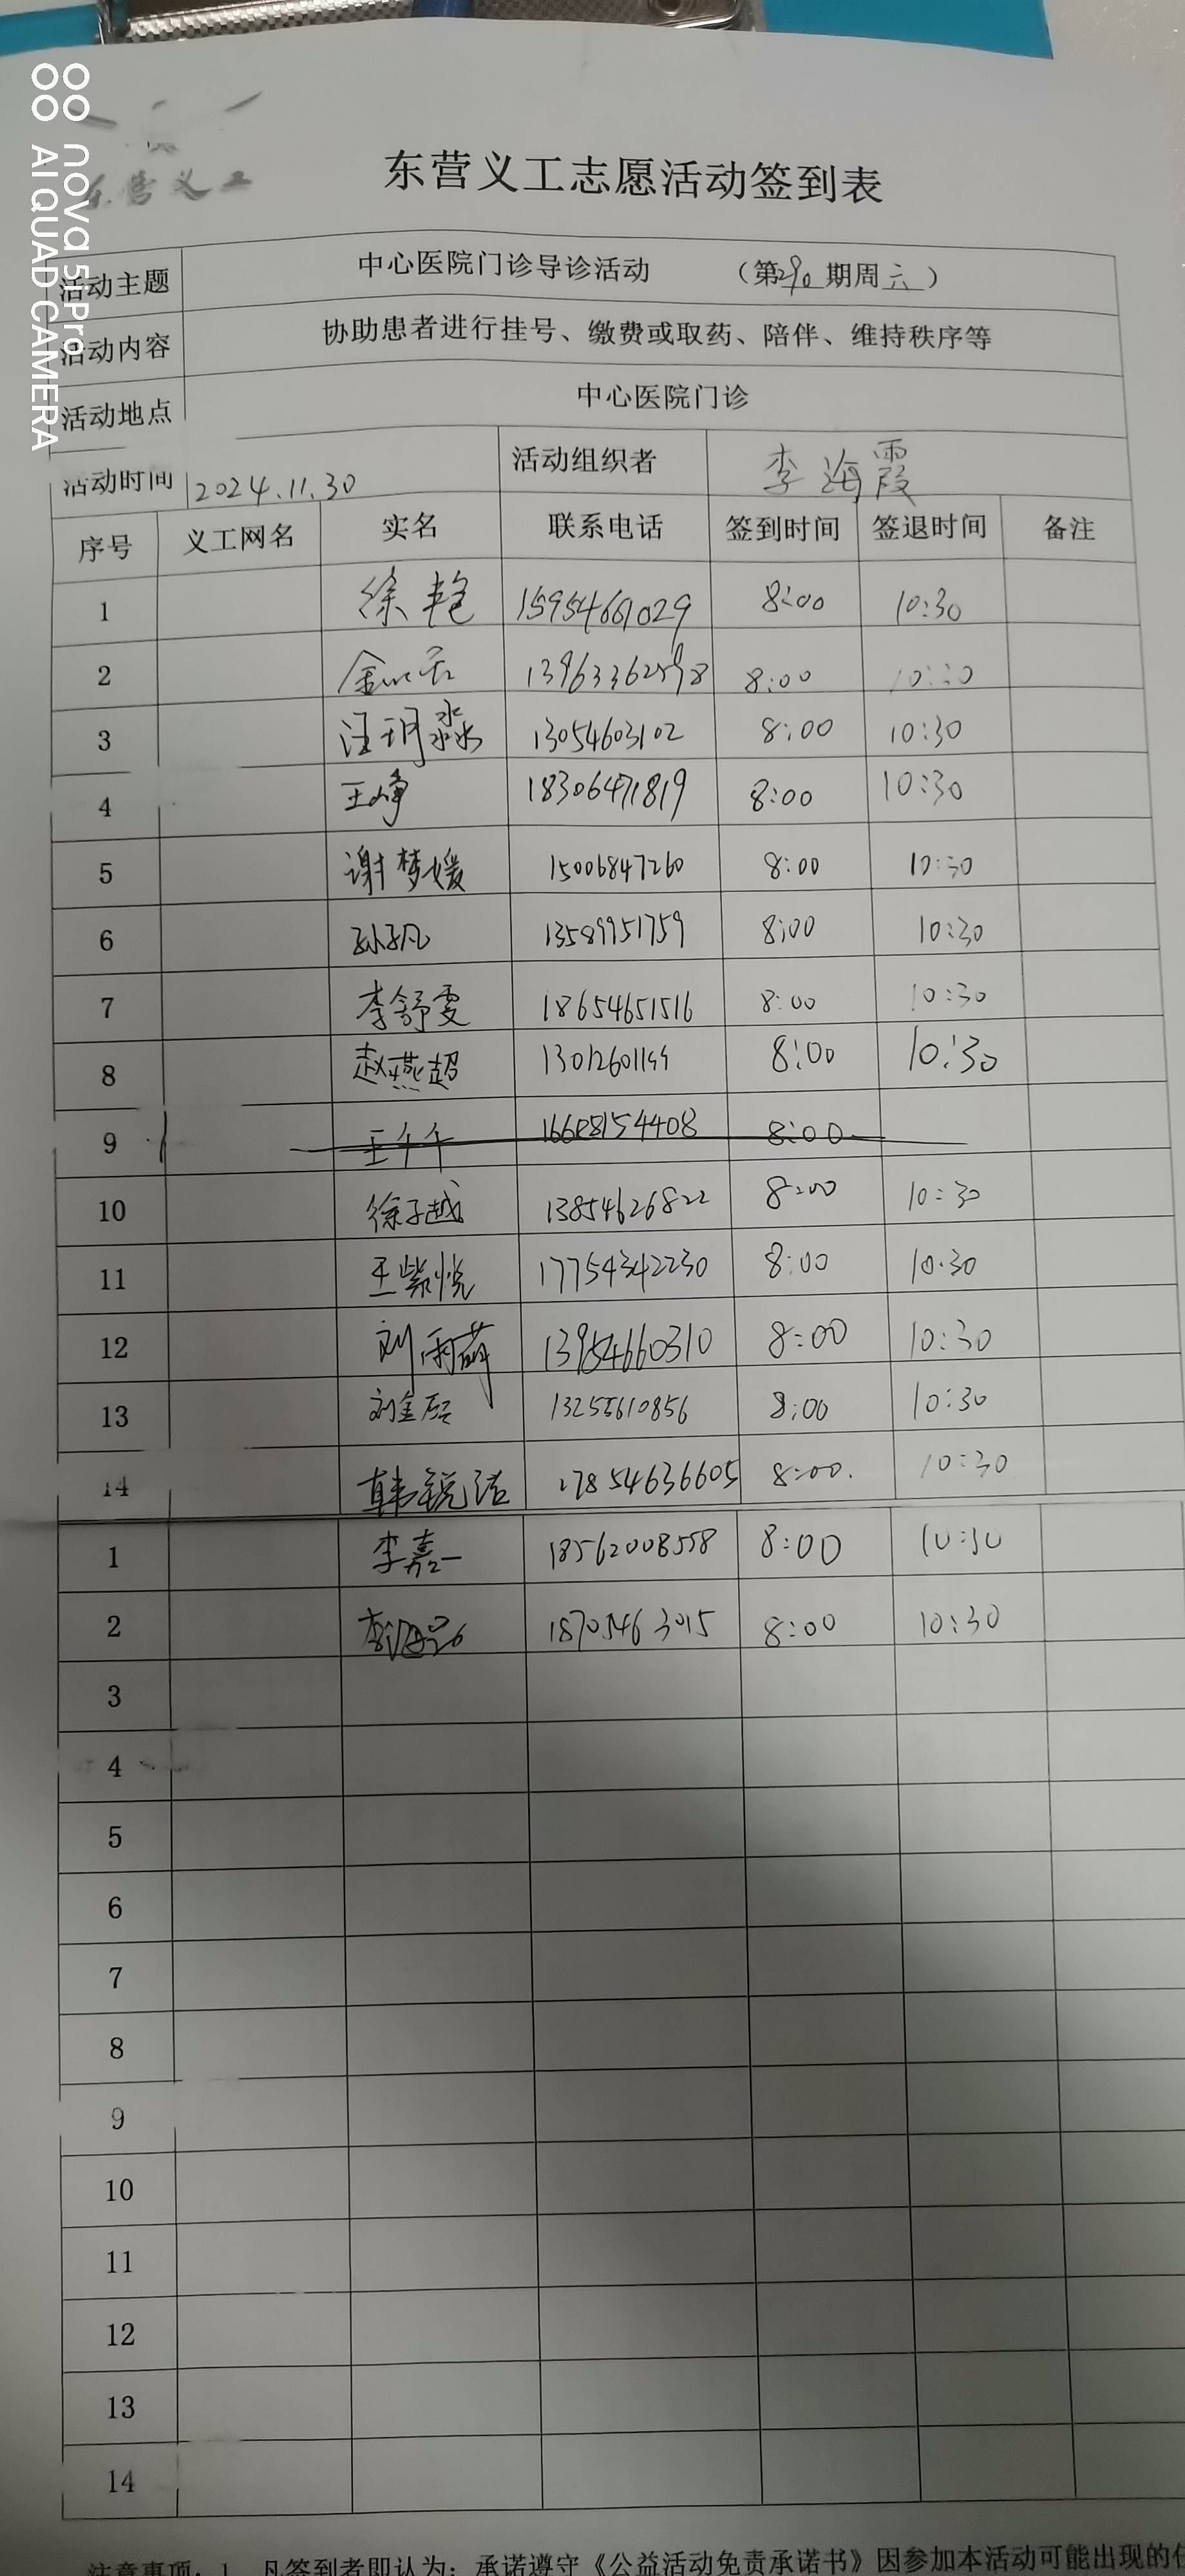 东营义工
nova 5i Pro
AI QUAD CAMERA
东营义工志愿活动签到表
活动主题 中心医院门诊导诊活动 （第290期周六）
活动内容 协助患者进行挂号、缴费或取药、陪伴、维持秩序等
活动地点 中心医院门诊
活动时间 2024.11.30 活动组织者 李海霞
序号 义工网名 实名 联系电话 签到时间 签退时间 备注
1 徐艳 15954661029 8:00 10:30
2 8:00 10:30
3 汪玥淼 13054603102 8:00 10:30
4 王峥 18306471819 8:00 10:30
5 谢梦媛 15006847260 8:00 10:30
6 孙子凡 13589951759 8:00 10:30
7 李舒雯 18654651516 8:00 10:30
8 赵燕超 8:00 10:30
9 王个个 8:00
10 徐子越 13854626822 8:00 10:30
11 王紫悦 17754342230 8:00 10:30
12 刘雨萌 13954660310 8:00 10:30
13 刘金 13255610856 8:00 10:30
14 韩锐洁 17854636605 8:00. 10:30
1 李嘉一 18562008558 8:00 10:30
2 18705463015 8:00 10:30
3
4
5
6
7
8
9
10
11
12
13
14
注意事项：1、凡签到者即认为：承诺遵守《公益活动免责承诺书》因参加本活动可能出现的任